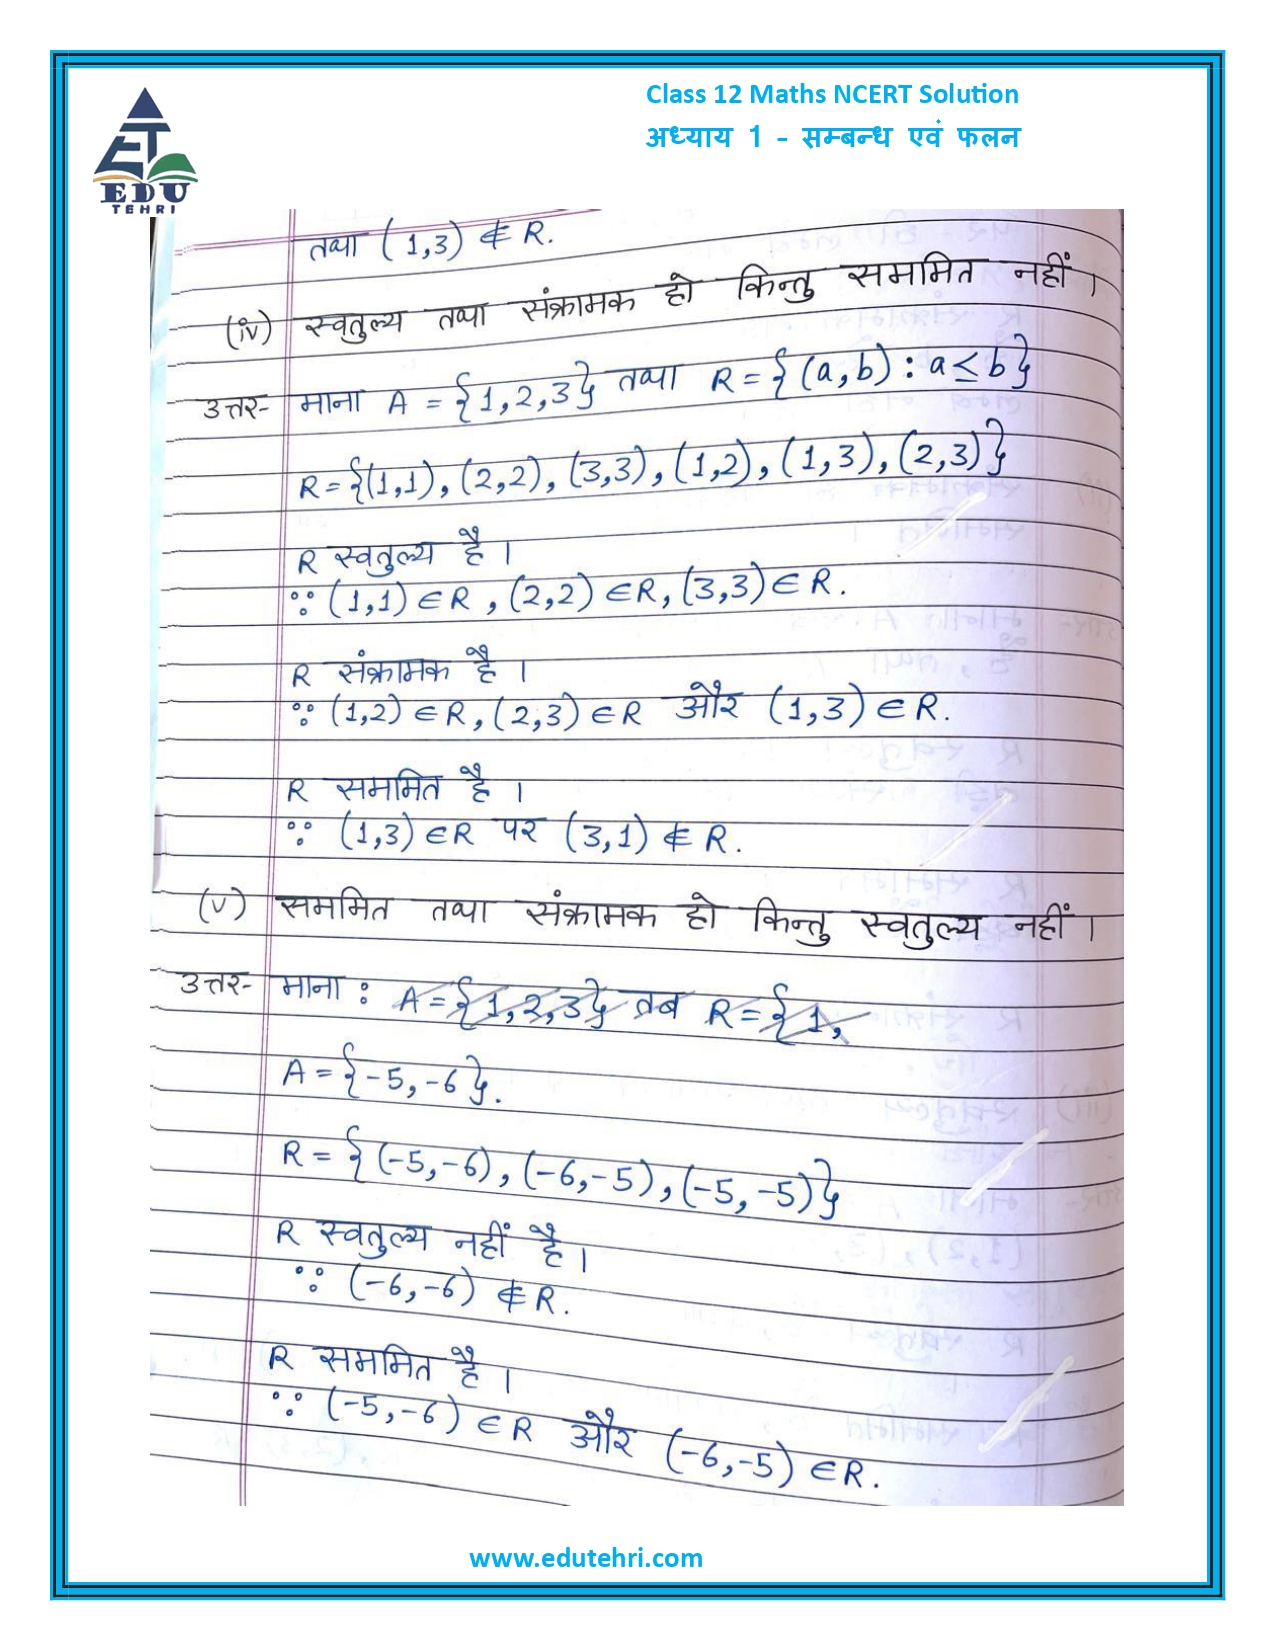 Class 12 Maths NCERT Solution
अध्याय 1 - सम्बन्ध एवं फलन
ET
EDU
TEHRI
तथा (1,3) ∉ R.
(iv) स्वतुल्य तथा संक्रामक हो किन्तु सममित नहीं ।
उत्तर- माना A = {1,2,3} तथा R = {(a,b) : a ≤ b}
R = {(1,1), (2,2), (3,3), (1,2), (1,3), (2,3)}
R स्वतुल्य है ।
∵ (1,1) ∈ R, (2,2) ∈ R, (3,3) ∈ R.
R संक्रामक है ।
∵ (1,2) ∈ R, (2,3) ∈ R और (1,3) ∈ R.
R सममित है ।
∵ (1,3) ∈ R पर (3,1) ∉ R.
(v) सममित तथा संक्रामक हो किन्तु स्वतुल्य नहीं ।
उत्तर- माना : A = {1,2,3} तब R = {1,
A = {-5, -6}.
R = {(-5,-6), (-6,-5), (-5,-5)}
R स्वतुल्य नहीं है ।
∵ (-6,-6) ∉ R.
R सममित है ।
∵ (-5,-6) ∈ R और (-6,-5) ∈ R.
www.edutehri.com